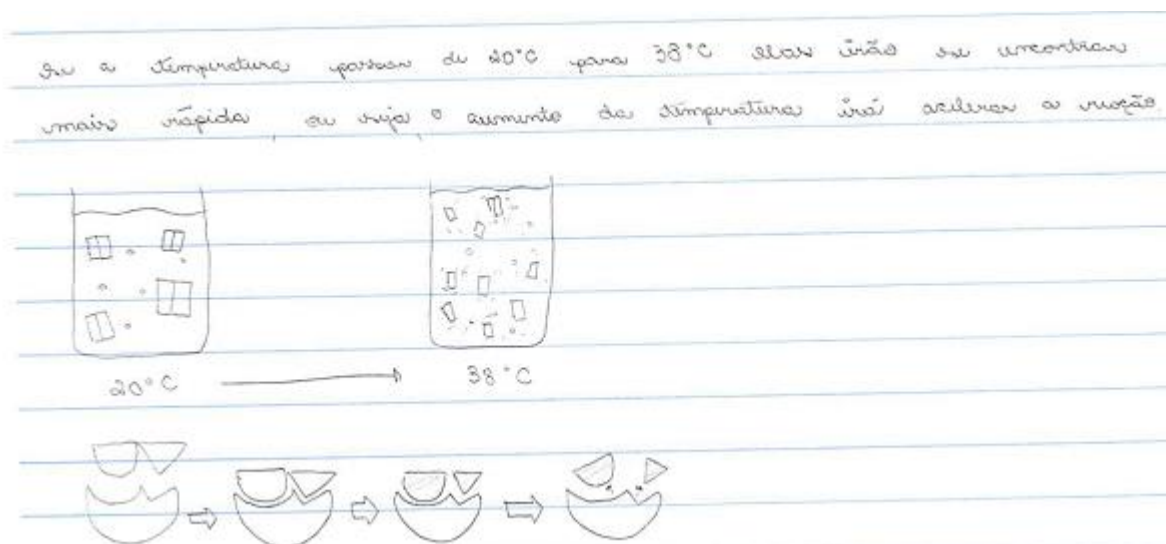 Se a temperatura passar de 20°C para 38°C elas irão se encontrar
mais rápida, ou seja, o aumento da temperatura irá acelerar a reação
20°C
38°C